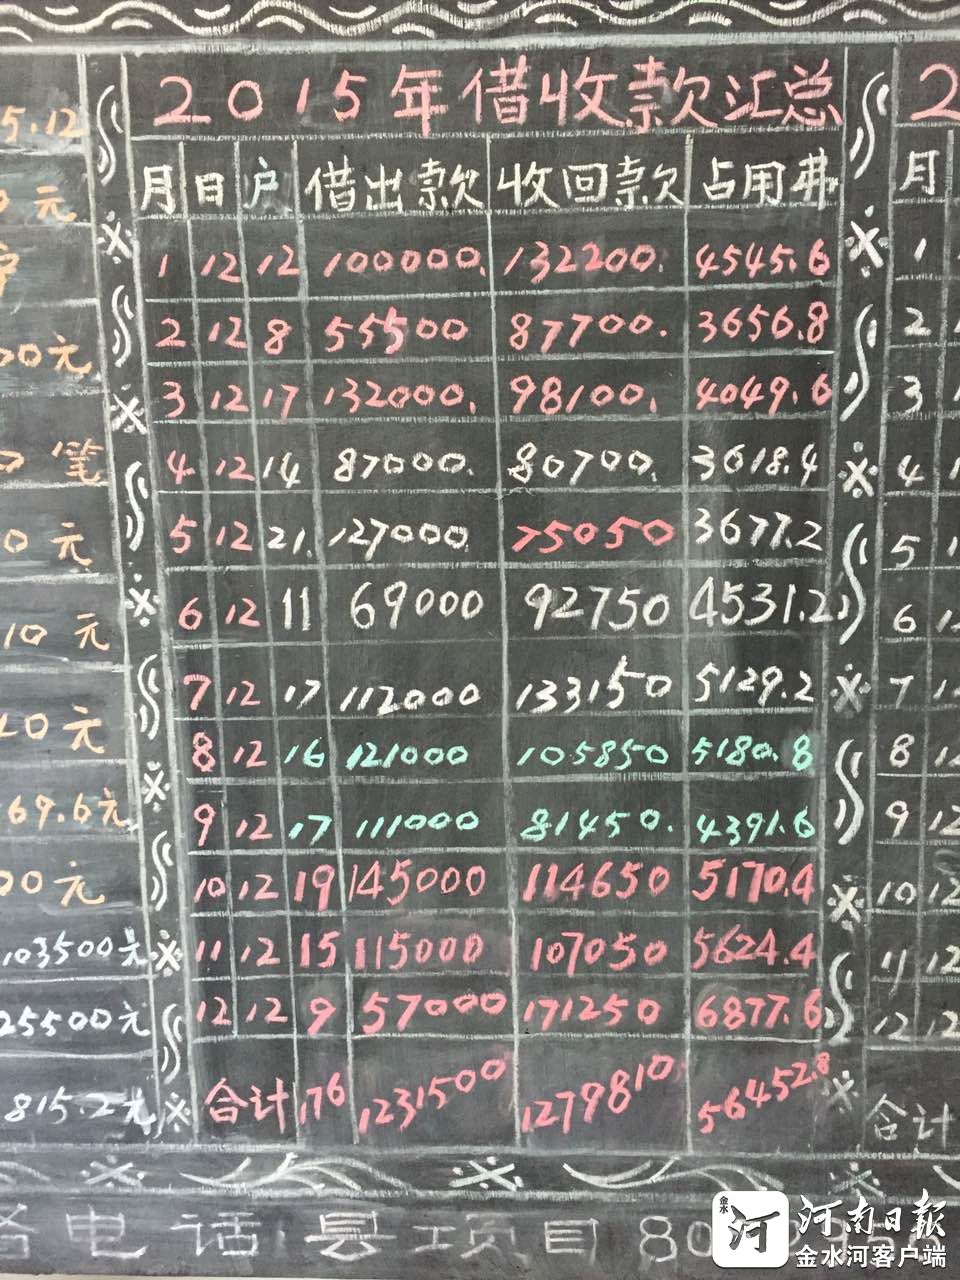 2015年借收款汇总
月 日 户 借出款 收回款 占用费
1 12 12 100000. 132200. 4545.6
2 12 8 55500 87700. 3656.8
3 12 17 132000. 98100. 4049.6
4 12 14 87000. 80700. 3618.4
5 12 21. 127000. 75050 3677.2
6 12 11 69000 92750 4531.2
7 12 17 112000 133150 5129.2
8 12 16 121000 105850 5180.8
9 12 17 111000 81450. 4391.6
10 12 19 145000 114650 5170.4
11 12 15 115000 107050 5624.4
12 12 9 57000 171250 6877.6
合计 176 1231500 1279810 56452.8
5.12
0元
00元
0笔
0元
10元
40元
69.6元
00元
103500元
25500元
815.2元
2
月
1
2
3
4 1
5 1
6 12
7 12
8 12
9 12
10 12
11 12
12 12
合计
电话县项目80
金水河 河南日报
金水河客户端